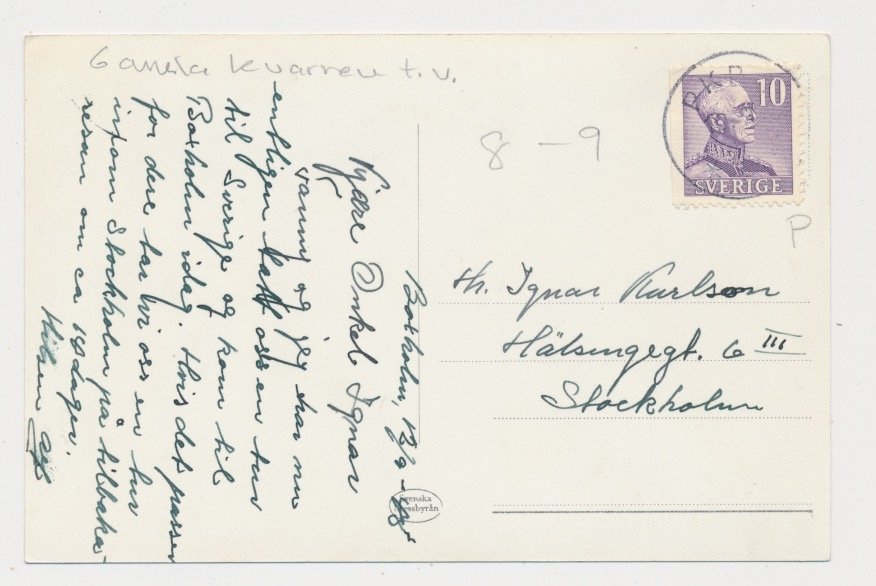 Gamla kvarnen t.v.
8 – 9
PKP
10
SVERIGE
P
Boxholm, 12/9 -
Kjære Onkel Ignar
Fanny og jeg har nu
entligen tatt oss en tur
til Sverige og kom til
Boxholm idag. Hvis det passer
for dere tar vi oss en tur
inom Stockholm på tilbaka-
resan om ca 14 dager.
Hilsen
Hr. Ignar Karlson
Hälsingegt. 6 III
Stockholm
Svenska
Pressbyrån